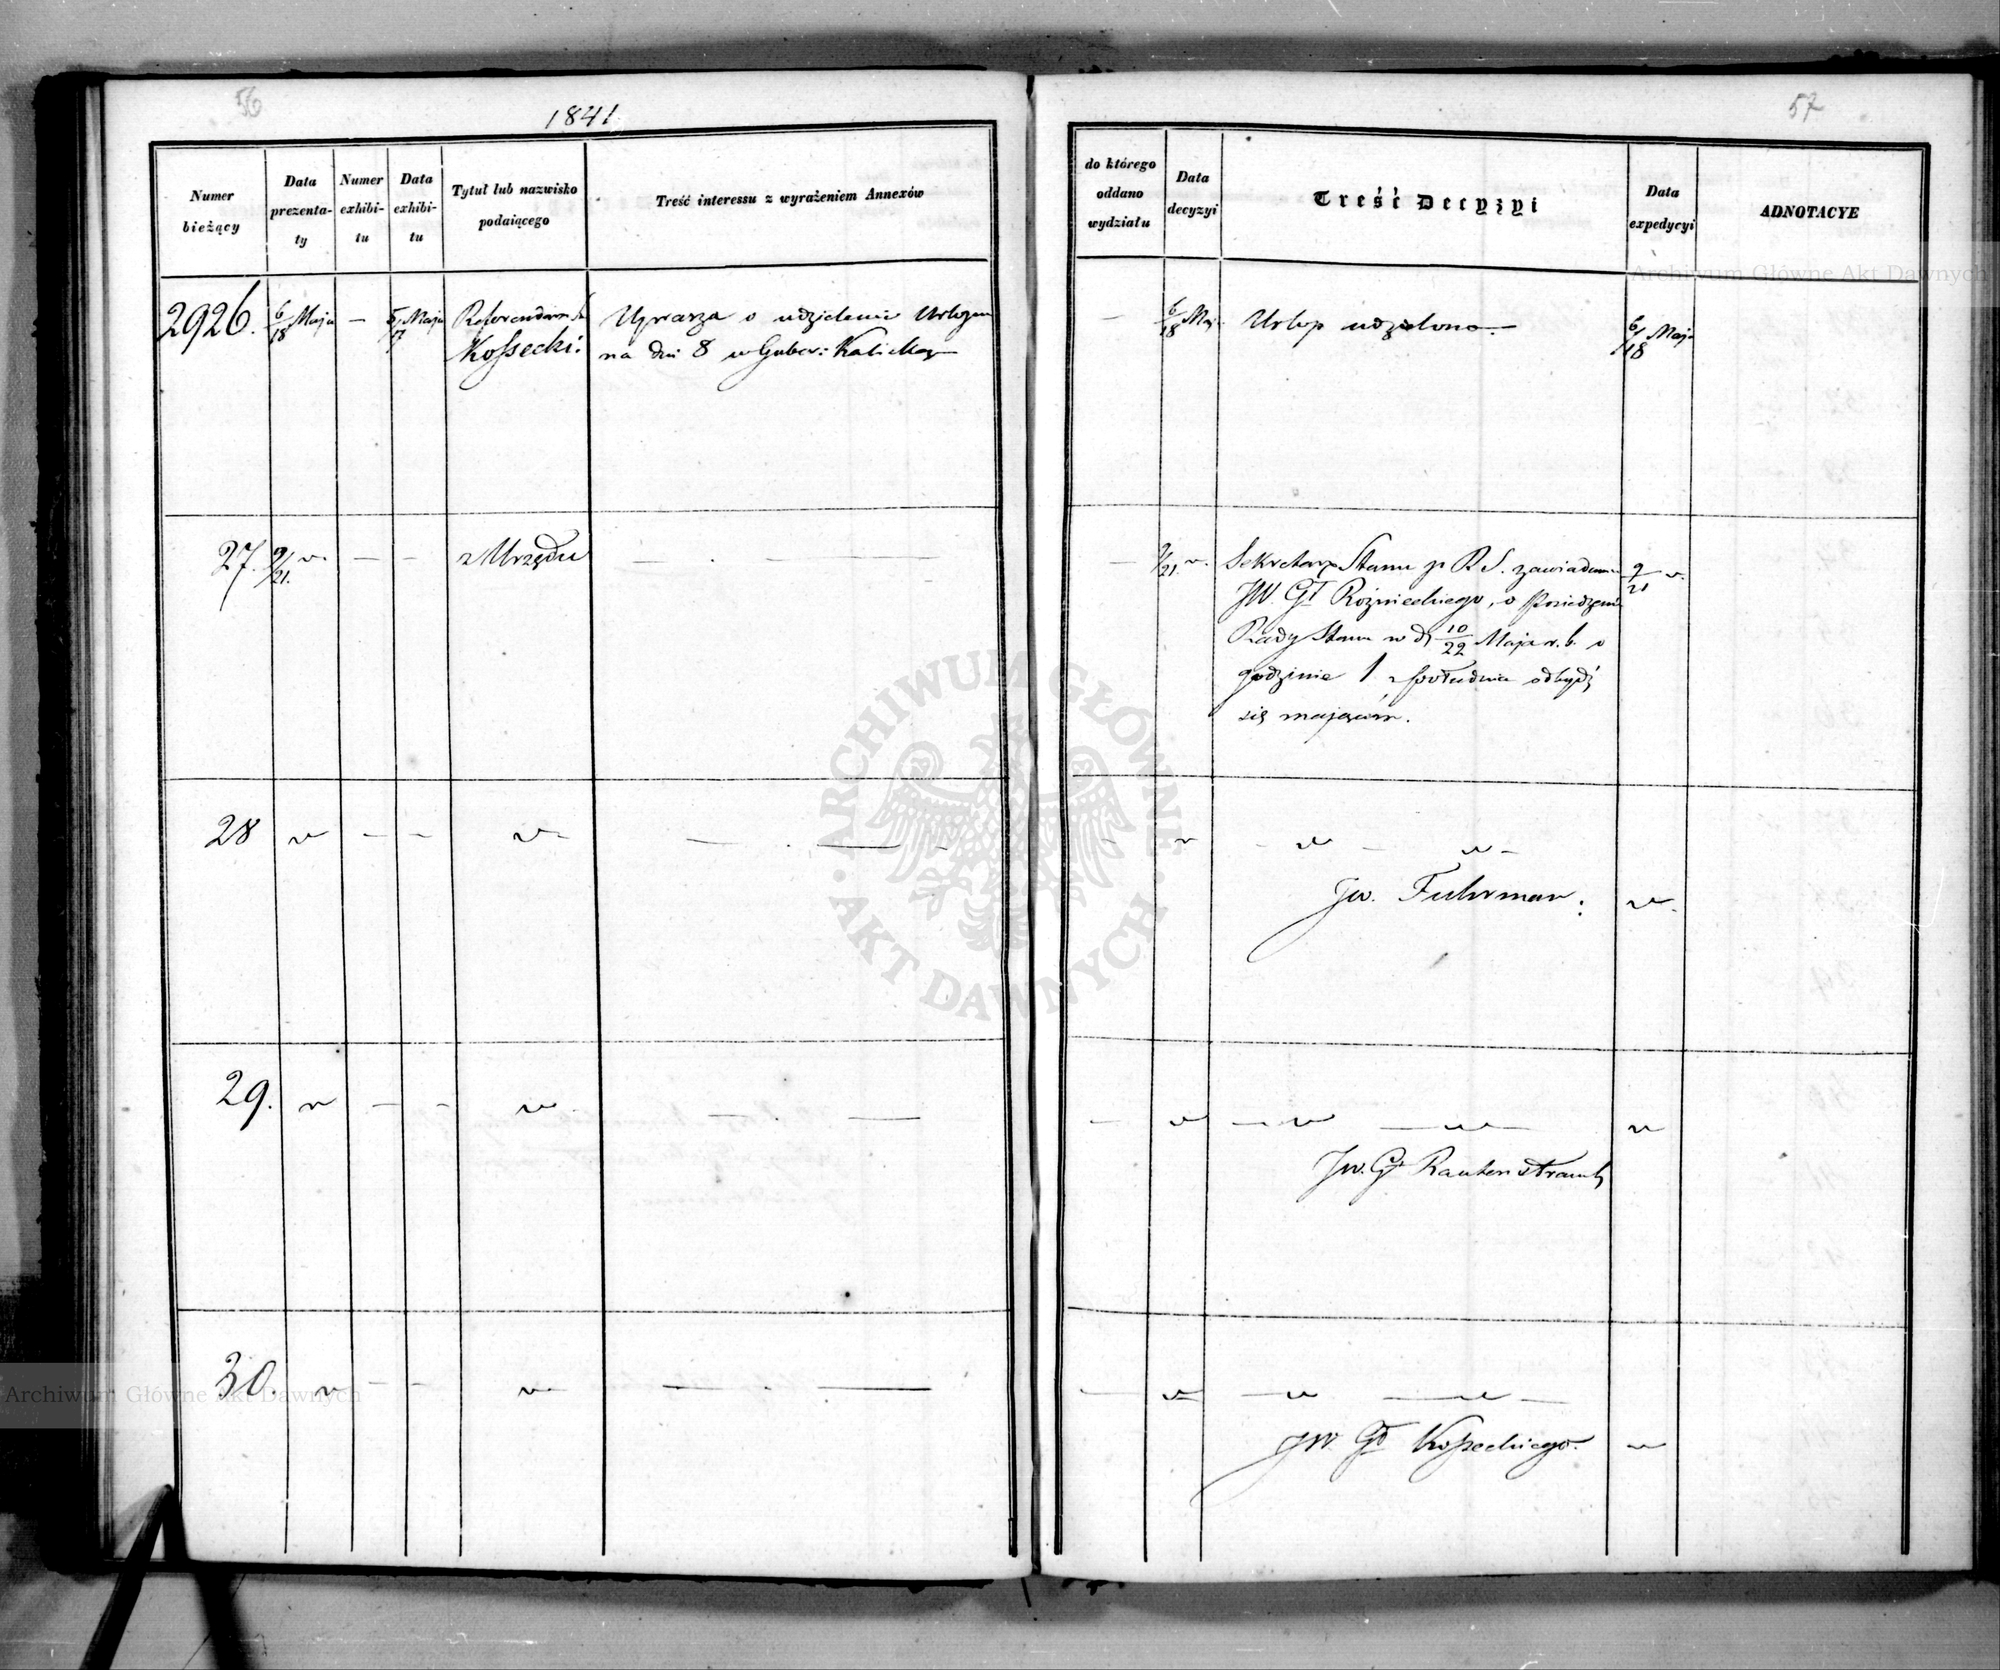 56
1841
57
Numer bieżący
Data prezenta-ty
Numer exhibi-tu
Data exhibi-tu
Tytuł lub nazwisko podaiącego
Treść interessu z wyrażeniem Annexów
do którego oddano wydziału
Data decyzyi
Treść Decyzyi
Data expedycyi
ADNOTACYE
2926. 6/18 Maja — 5/17 Maja
Kossecki:
Uprasza o udzielenie Urlopu
na dni 8 w Guber: Kaliskiey
— 6/18 Maj. Urlop udzielono.— 6/18 Maja
27. 9/21. v. — — z Urzędu — . — —
— 9/21. v. Sekretarz Stanu p R. S. zawiadamia 9/21 v.
JW. Gł Rożnieckiego, o Posiedzeniu
Rady Stanu w d. 10/22 Maja r. b. o
godzinie 1 z południa odbydź
się mającém.
28 v — — v — . —
— v — v — v —
JW. Fuhrman: v.
29. v — — v — . —
— v — v — v — v
JW. Gł Rautenstrauch
30. v — — v — . —
— v — v — v —
JW. Gł Kosseckiego. v
ARCHIWUM GŁÓWNE · AKT DAWNYCH ·
Archiwum Główne Akt Dawnych
Archiwum Główne Akt Dawnych